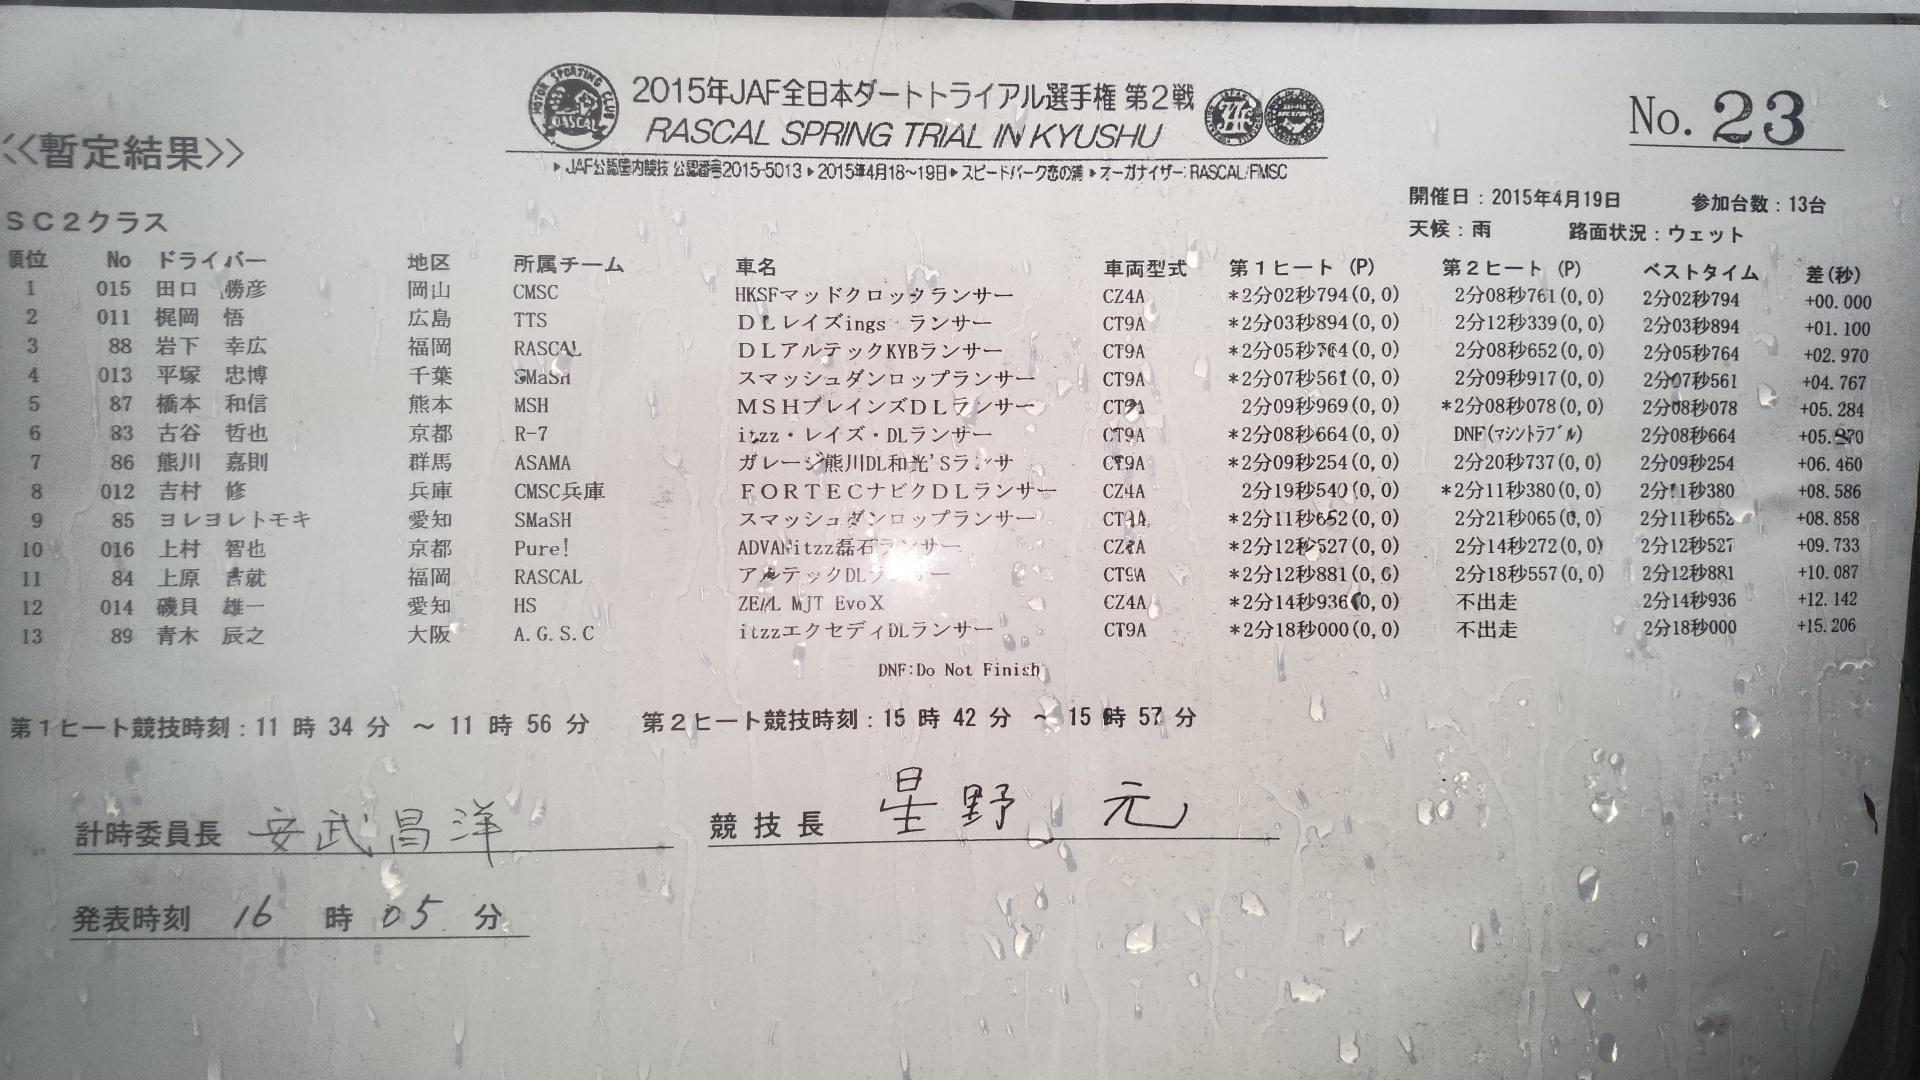 2015年JAF全日本ダートトライアル選手権 第2戦
RASCAL SPRING TRIAL IN KYUSHU
No. 23
<<暫定結果>>
▶JAF公認国内競技 公認番号2015-5013▶2015年4月18~19日▶スピードパーク恋の浦▶オーガナイザー:RASCAL/FMSC
開催日:2015年4月19日 参加台数:13台
SC2クラス
天候:雨 路面状況:ウェット
順位 No ドライバー 地区 所属チーム 車名 車両型式 第1ヒート (P) 第2ヒート (P) ベストタイム 差(秒)
1 015 田口 勝彦 岡山 CMSC HKSFマッドクロックランサー CZ4A *2分02秒794(0,0) 2分08秒761(0,0) 2分02秒794 +00.000
2 011 梶岡 悟 広島 TTS DLレイズings ランサー CT9A *2分03秒894(0,0) 2分12秒339(0,0) 2分03秒894 +01.100
3 88 岩下 幸広 福岡 RASCAL DLアルテックKYBランサー CT9A *2分05秒764(0,0) 2分08秒652(0,0) 2分05秒764 +02.970
4 013 平塚 忠博 千葉 SMaSH スマッシュダンロップランサー CT9A *2分07秒561(0,0) 2分09秒917(0,0) 2分07秒561 +04.767
5 87 橋本 和信 熊本 MSH MSHブレインズDLランサー CT9A 2分09秒969(0,0) *2分08秒078(0,0) 2分08秒078 +05.284
6 83 古谷 哲也 京都 R-7 itzz・レイズ・DLランサー CT9A *2分08秒664(0,0) DNF(マシントラブル) 2分08秒664 +05.870
7 86 熊川 嘉則 群馬 ASAMA ガレージ熊川DL和光'Sランサ CT9A *2分09秒254(0,0) 2分20秒737(0,0) 2分09秒254 +06.460
8 012 吉村 修 兵庫 CMSC兵庫 FORTECナビクDLランサー CZ4A 2分19秒540(0,0) *2分11秒380(0,0) 2分11秒380 +08.586
9 85 ヨレヨレトモキ 愛知 SMaSH スマッシュダンロップランサー CT9A *2分11秒652(0,0) 2分21秒065(0,0) 2分11秒652 +08.858
10 016 上村 智也 京都 Pure! ADVANitzz磊石ランサー CZ4A *2分12秒527(0,0) 2分14秒272(0,0) 2分12秒527 +09.733
11 84 上原 吉就 福岡 RASCAL アルテックDLランサー CT9A *2分12秒881(0,0) 2分18秒557(0,0) 2分12秒881 +10.087
12 014 磯貝 雄一 愛知 HS ZEAL MJT EvoX CZ4A *2分14秒936(0,0) 不出走 2分14秒936 +12.142
13 89 青木 辰之 大阪 A.G.S.C itzzエクセディDLランサー CT9A *2分18秒000(0,0) 不出走 2分18秒000 +15.206
DNF:Do Not Finish
第1ヒート競技時刻:11 時 34 分 ~ 11 時 56 分 第2ヒート競技時刻:15 時 42 分 ~ 15 時 57 分
計時委員長 安武昌洋 競技長 星野 元
発表時刻 16 時 05 分